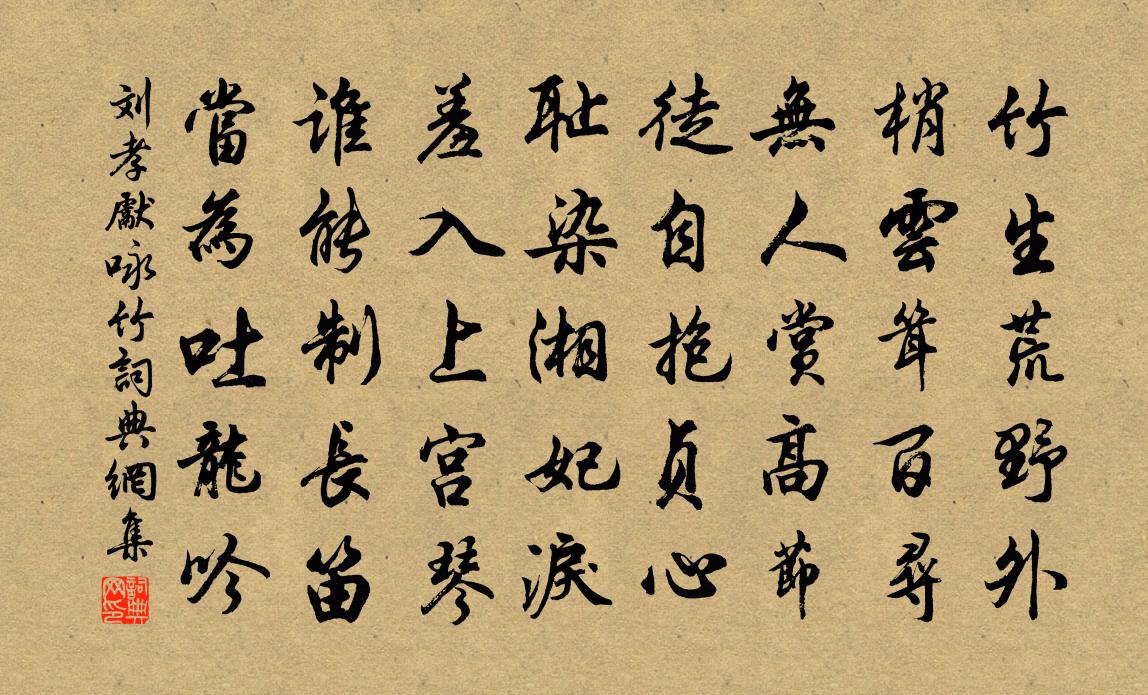 竹生荒野外
梢雲耸百尋
無人賞高節
徒自抱貞心
耻染湘妃淚
羞入上宫琴
誰能制長笛
當為吐龍吟
刘孝獻咏竹詞典網集
詞典
网印